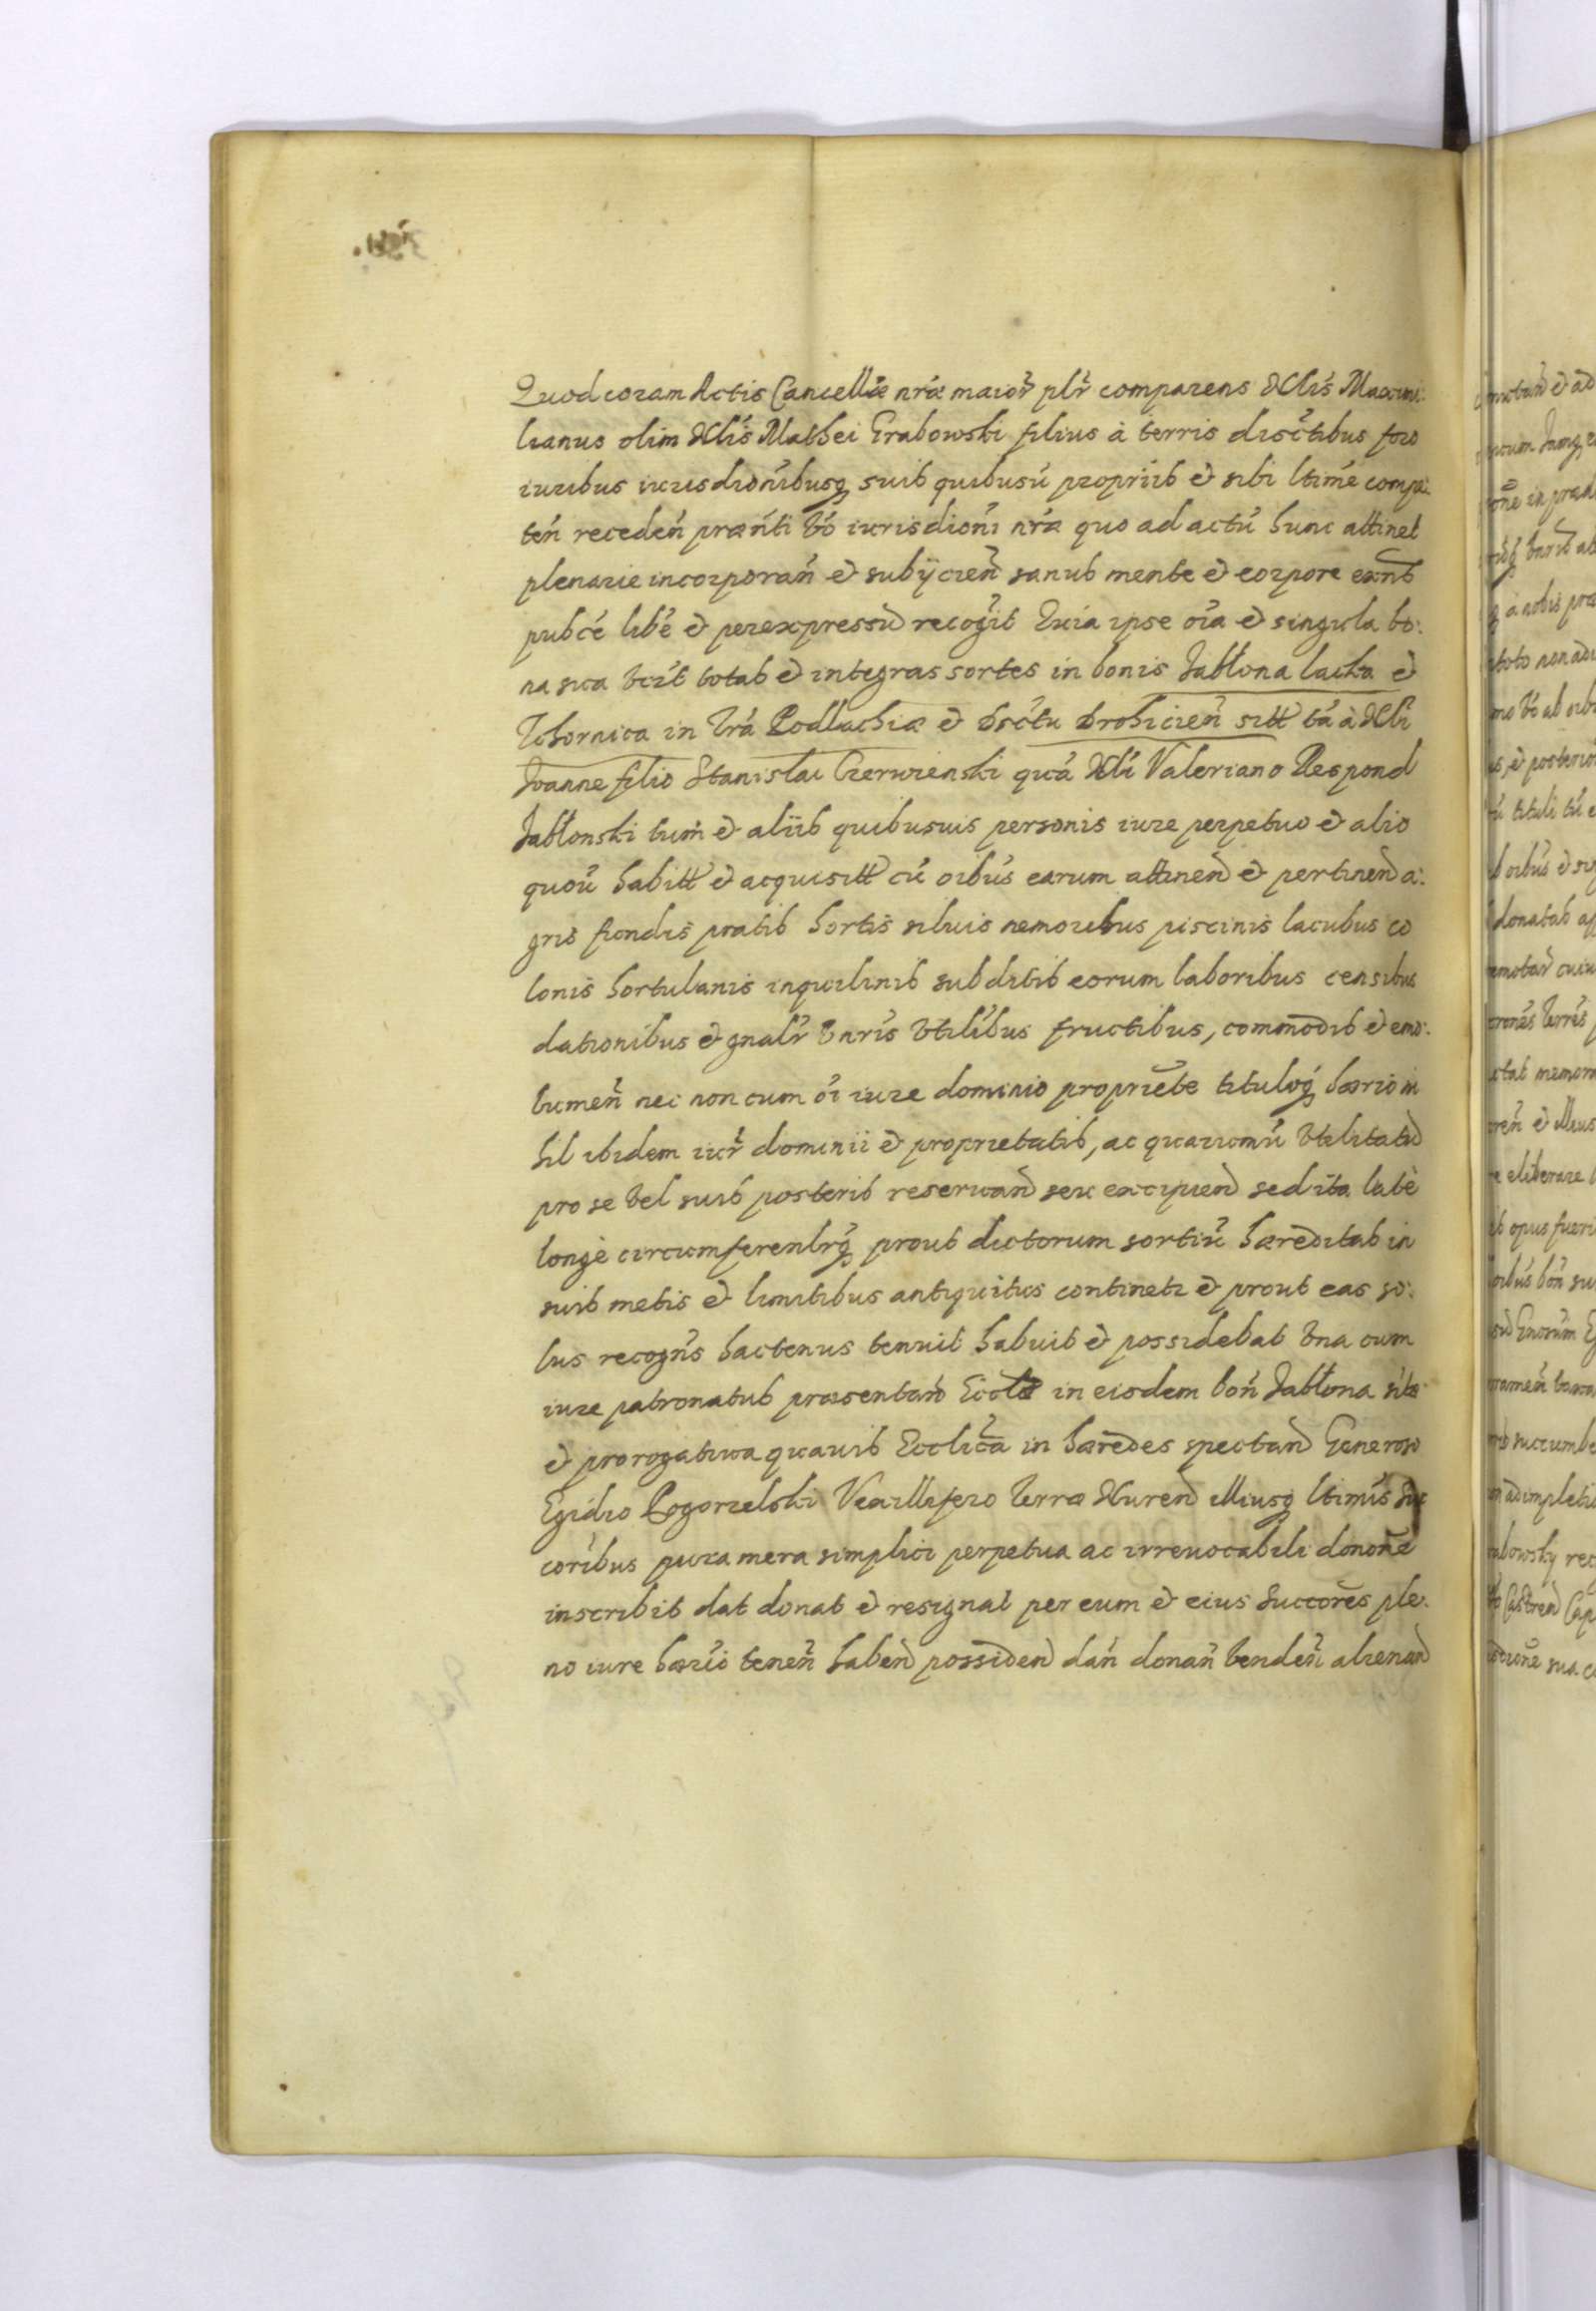 Quod coram Actis Cancellæ nræ maior plr comparens Nblis Maximi:
lianus olim Nblis Mathei Grabowski filius à terris disctibus foro
iuribus iurisdionibusq suis quibusuis proprijs et sibi ltime compe:
ten receden prænti vo iurisdioni nræ quo ad actu hunc attinet
plenarie incorporan et subijcien sanus mente et corpore exns
pubce libe et perexpressu recogit Quia ipse oia et singula bo:
na sua vczt totas et integras sortes in bonis Jabłona lacka et
Tchornica in Tra Podlachiæ et dsctu drohicien sitt ta à Nbli
Joanne filio Stanislai Czerwienski qua Nbli Valeriano Respond
Jabłonski tum et aliis quibusuis personis iure perpetuo et alio
quou habitt et acquisitt cu oibus earum attinen et pertinen a:
gris fundis pratis hortis siluis nemoribus piscinis lacubus co
lonis hortulanis inquilinis subditis eorum laboribus censibus
dationibus et gnalr vnris vtilibus fructibus, commodis et emo:
lumen nec non cum oi iure dominio propriete tituloq hærio ni
hil ibidem iur dominii et proprietatis, ac quarumu vtilitatu
pro se vel suis posteris reseruan seu excipien sed ita latè
longè circumferenlrq prout dictorum sortiu hæreditas in
suis metis et limitibus antiquitus continetr et prout eas so:
lus recogns hactenus tenuit habuit et possidebat vna cum
iure patronatus præsentan Eccłæ in eisdem bon Jabłona sitæ
et prorogatiua quauis Eccłica in hæredes spectan Generoso
Egidio Pogorzelski Vexillifero Terræ Nuren illiusq ltimis suc
coribus pura mera simplici perpetua ac irreuocabili donone
inscribit dat donat et resignat per eum et eius succores ple:
no iure hærio tenen haben possiden dan donan venden alienan